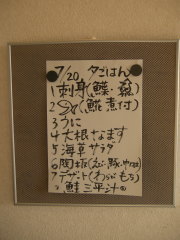 7/20 夕ごはん
1 刺身(鰈・
2 (鯱煮付)
3 うに
4 大根なます
5 海草サラダ
6 陶板(えび、豚、
7 デザート(わらびもち)
鮭三平汁